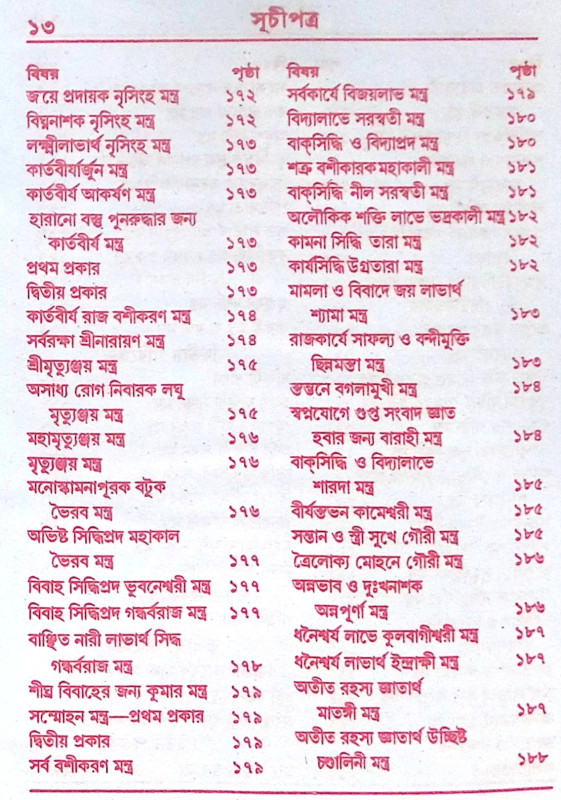 ১৩
সূচীপত্র
বিষয় পৃষ্ঠা
জয়ে প্রদারক নৃসিংহ মন্ত্র ১৭২
বিঘ্ননাশক নৃসিংহ মন্ত্র ১৭২
লক্ষ্মীলাভার্থ নৃসিংহ মন্ত্র ১৭৩
কার্তবীর্যার্জুন মন্ত্র ১৭৩
কার্তবীর্য আকর্ষণ মন্ত্র ১৭৩
হারানো বস্তু পুনরুদ্ধার জন্য
কার্তবীর্য মন্ত্র ১৭৩
প্রথম প্রকার ১৭৩
দ্বিতীয় প্রকার ১৭৩
কার্তবীর্য রাজ বশীকরণ মন্ত্র ১৭৪
সর্বরক্ষা শ্রীনারায়ণ মন্ত্র ১৭৪
শ্রীমৃত্যুঞ্জয় মন্ত্র ১৭৫
অসাধ্য রোগ নিবারক লঘু
মৃত্যুঞ্জয় মন্ত্র ১৭৫
মহামৃত্যুঞ্জয় মন্ত্র ১৭৬
মৃত্যুঞ্জয় মন্ত্র ১৭৬
মনোস্কামনাপূরক বটুক
ভৈরব মন্ত্র ১৭৬
অভিষ্ট সিদ্ধিপ্রদ মহাকাল
ভৈরব মন্ত্র ১৭৭
বিবাহ সিদ্ধিপ্রদ ভুবনেশ্বরী মন্ত্র ১৭৭
বিবাহ সিদ্ধিপ্রদ গন্ধর্বরাজ মন্ত্র ১৭৭
বাঞ্ছিত নারী লাভার্থ সিদ্ধ
গন্ধর্বরাজ মন্ত্র ১৭৮
শীঘ্র বিবাহের জন্য কুমার মন্ত্র ১৭৯
সম্মোহন মন্ত্র—প্রথম প্রকার ১৭৯
দ্বিতীয় প্রকার ১৭৯
সর্ব বশীকরণ মন্ত্র ১৭৯
বিষয় পৃষ্ঠা
সর্বকার্যে বিজয়লাভ মন্ত্র ১৭৯
বিদ্যালাভে সরস্বতী মন্ত্র ১৮০
বাক্‌সিদ্ধি ও বিদ্যাপ্রদ মন্ত্র ১৮০
শত্রু বশীকারক মহাকালী মন্ত্র ১৮১
বাক্‌সিদ্ধি নীল সরস্বতী মন্ত্র ১৮১
অলৌকিক শক্তি লাভে ভদ্রকালী মন্ত্র ১৮২
কামনা সিদ্ধি তারা মন্ত্র ১৮২
কার্যসিদ্ধি উগ্রতারা মন্ত্র ১৮২
মামলা ও বিবাদে জয় লাভার্থ
শ্যামা মন্ত্র ১৮৩
রাজকার্যে সাফল্য ও বন্দীমুক্তি
ছিন্নমস্তা মন্ত্র ১৮৩
স্তম্ভনে বগলামুখী মন্ত্র ১৮৪
স্বপ্নযোগে গুপ্ত সংবাদ জ্ঞাত
হবার জন্য বারাহী মন্ত্র ১৮৪
বাক্‌সিদ্ধি ও বিদ্যালাভে
শারদা মন্ত্র ১৮৫
বীর্যস্তম্ভন কামেশ্বরী মন্ত্র ১৮৫
সন্তান ও স্ত্রী সুখে গৌরী মন্ত্র ১৮৫
ত্রৈলোক্য মোহনে গৌরী মন্ত্র ১৮৬
অন্নভাব ও দুঃখনাশক
অন্নপূর্ণা মন্ত্র ১৮৬
ধনৈশ্বর্য লাভে কুলবাগীশ্বরী মন্ত্র ১৮৭
ধনৈশ্বর্য লাভার্থ ইন্দ্রাক্ষী মন্ত্র ১৮৭
অতীত রহস্য জ্ঞাতার্থ
মাতঙ্গী মন্ত্র ১৮৭
অতীত রহস্য জ্ঞাতার্থ উচ্ছিষ্ট
চণ্ডালিনী মন্ত্র ১৮৮